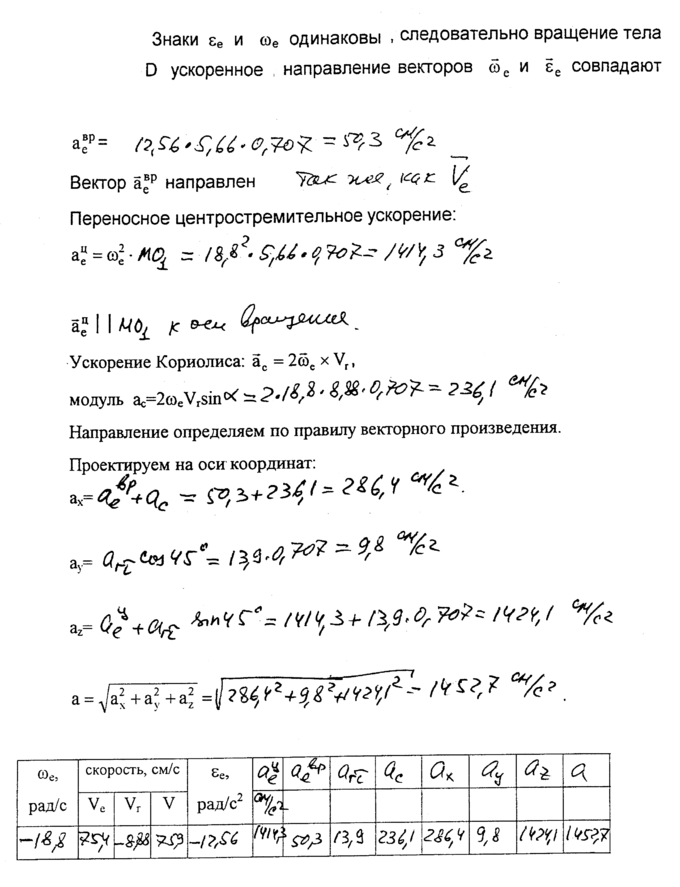 Знаки εe и ωe одинаковы , следовательно вращение тела
D ускоренное , направление векторов ω̄e и ε̄e совпадают
aeвр = 12,56·5,66·0,707 = 50,3 см/с2
Вектор āeвр направлен так же, как V̄e
Переносное центростремительное ускорение:
aeц = ωe2 · MO1 = 18,8²·5,66·0,707 = 1414,3 см/с2
āeц || MO1 к оси вращения.
Ускорение Кориолиса: āc = 2ω̄e × Vr,
модуль ac=2ωeVrsinα = 2·18,8·8,88·0,707 = 236,1 см/с2
Направление определяем по правилу векторного произведения.
Проектируем на оси координат:
ax= aeвр + ac = 50,3+236,1 = 286,4 см/с2.
ay= arτ cos45° = 13,9·0,707 = 9,8 см/с2
az= aeц + arτ sin45° = 1414,3 + 13,9·0,707 = 1424,1 см/с2
a = √ax2 + ay2 + az2 = √286,4² + 9,8² + 1424,1² = 1452,7 см/с2.
ωe, скорость, см/с εe, aeц aeвр arτ ac ax ay az a
рад/с Ve Vr V рад/с2 см/с2
-18,8 75,4 -8,88 75,9 -12,56 1414,3 50,3 13,9 236,1 286,4 9,8 1424,1 1452,7